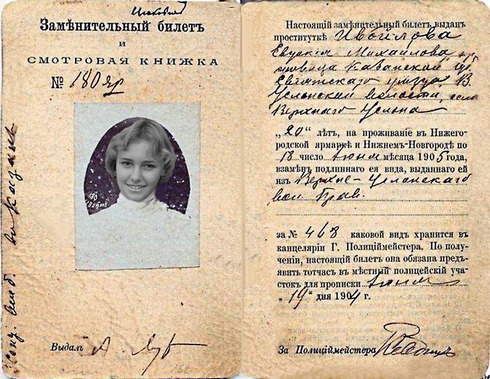 Замѣнительный билетъ
и
СМОТРОВАЯ КНИЖКА
№ 180 яр
Выдалъ
Настоящій замѣнительный билетъ выданъ
проституткѣ Ивойлова
Евдокія Михайлова
Казанской
Свіяжскаго уѣзда, В.
Услонской волости, село
Верхняго Услона
„20“ лѣтъ, на проживаніе въ Нижего-
родской ярмаркѣ и Нижнемъ-Новгородѣ по
18 число Іюня мѣсяца 1905 года,
взамѣнъ подлиннаго ея вида, выданнаго ей
изъ Верхне-Услонскаго
вол. Прав.
за № 468 каковой видъ хранится въ
канцеляріи Г. Полиціймейстера. По полу-
ченіи, настоящій билетъ она обязана предъ-
явить тотчасъ въ мѣстный полицейскій уча-
стокъ для прописки Іюня
„19“ дня 1904 г.
За Полиціймейстера